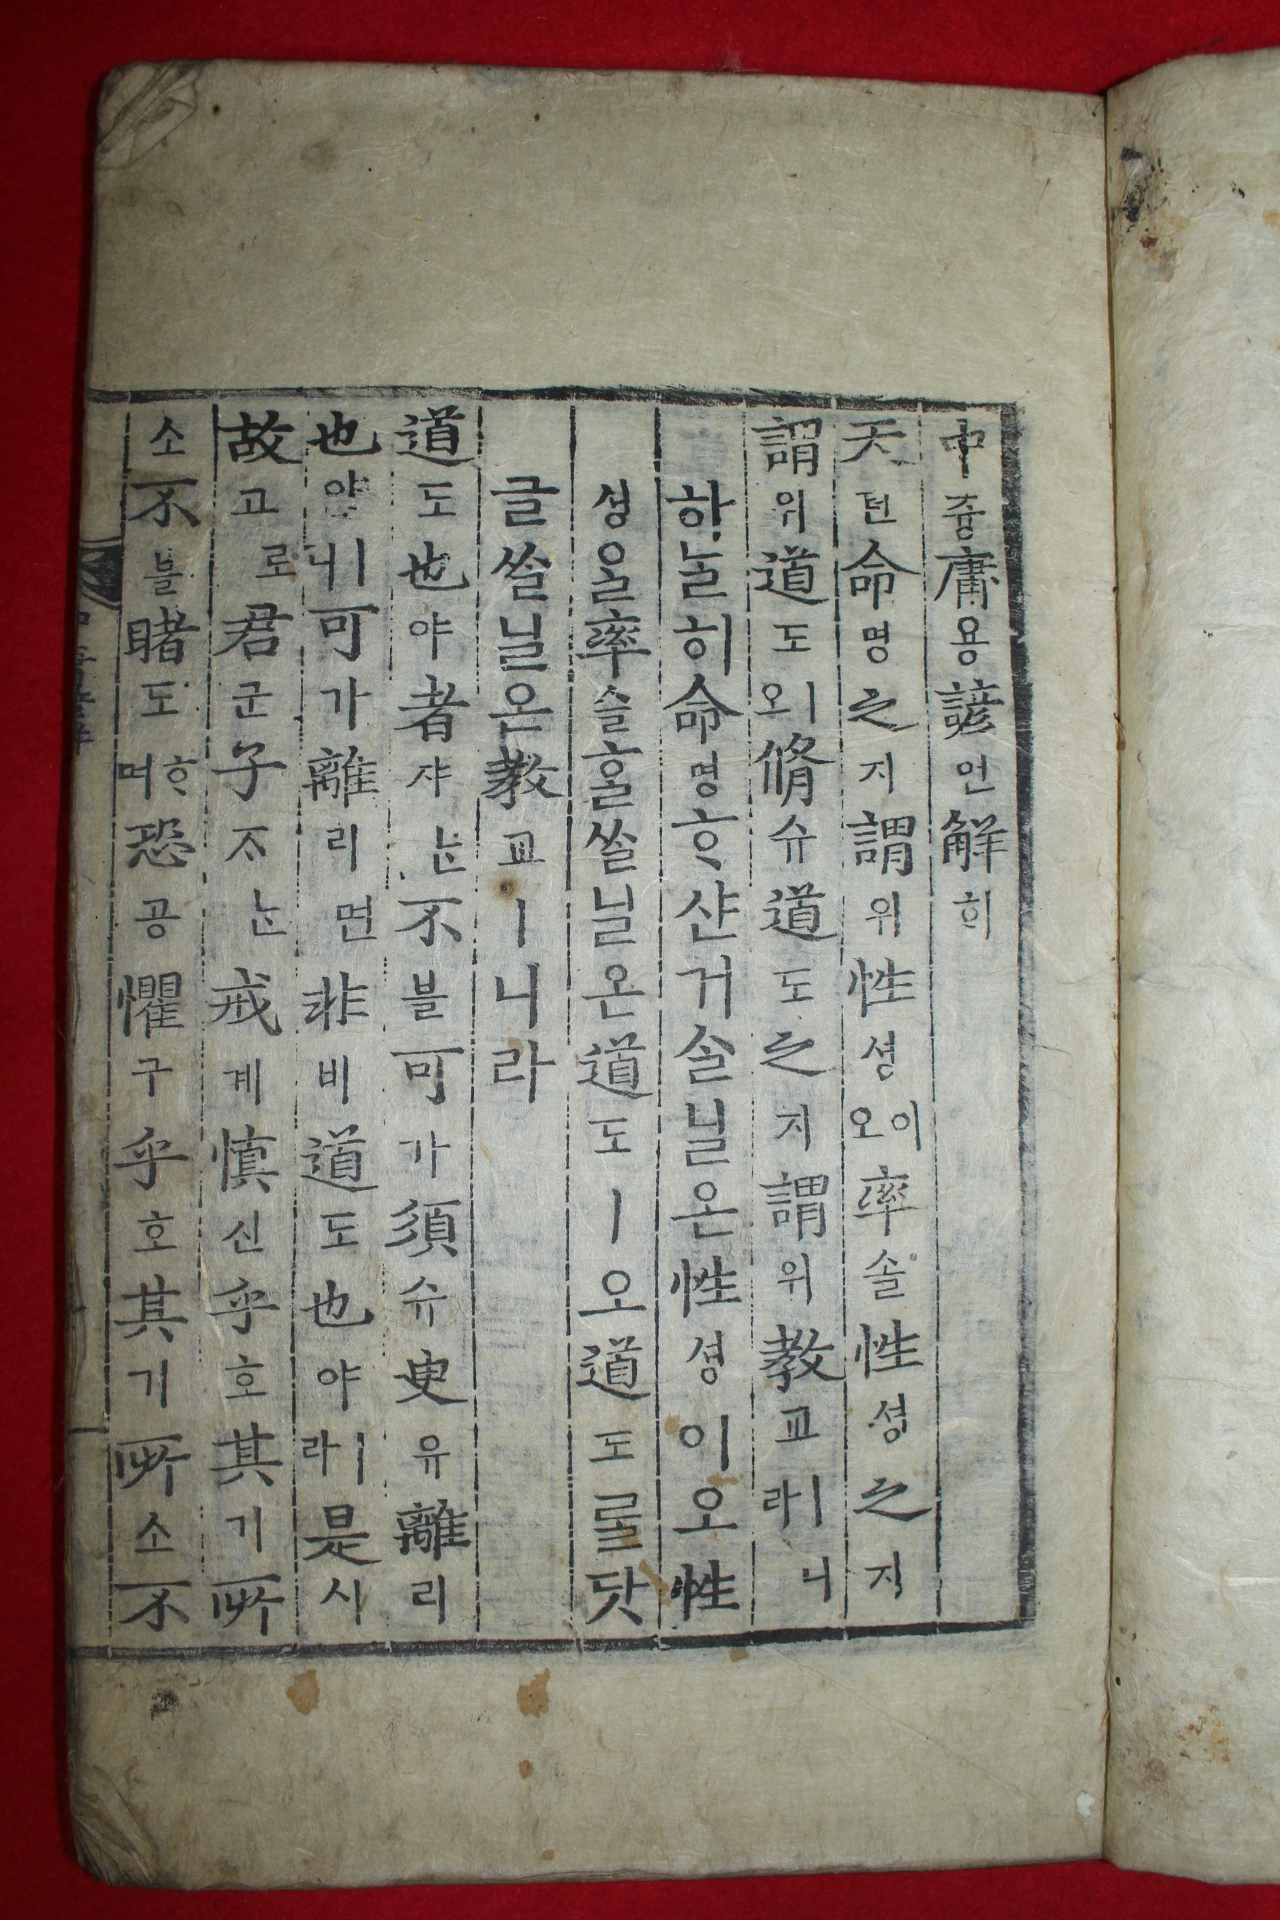 中즁庸용諺언解ᄒᆡ
天텬命명之지謂위性셩이오率솔性셩之지
謂위道도ㅣ오脩슈道도之지謂위敎교ㅣ라니
하ᄂᆞᆯ히命명ᄒᆞ샨거ᄉᆞᆯ닐온性셩이오性
셩을率솔홀ᄡᆞᆯ닐온道도ㅣ오道도ᄅᆞᆯ닷
글ᄡᆞᆯ닐온敎교ㅣ니라
道도也야者쟈ᄂᆞᆫ不블可가須슈臾유離리
也야ㅣ니可가離리면非비道도也야ㅣ라是시
故고로君군子ᄌᆞᄂᆞᆫ戒계愼신乎호其기所
소不블睹도ᄒᆞ며恐공懼구乎호其기所소不